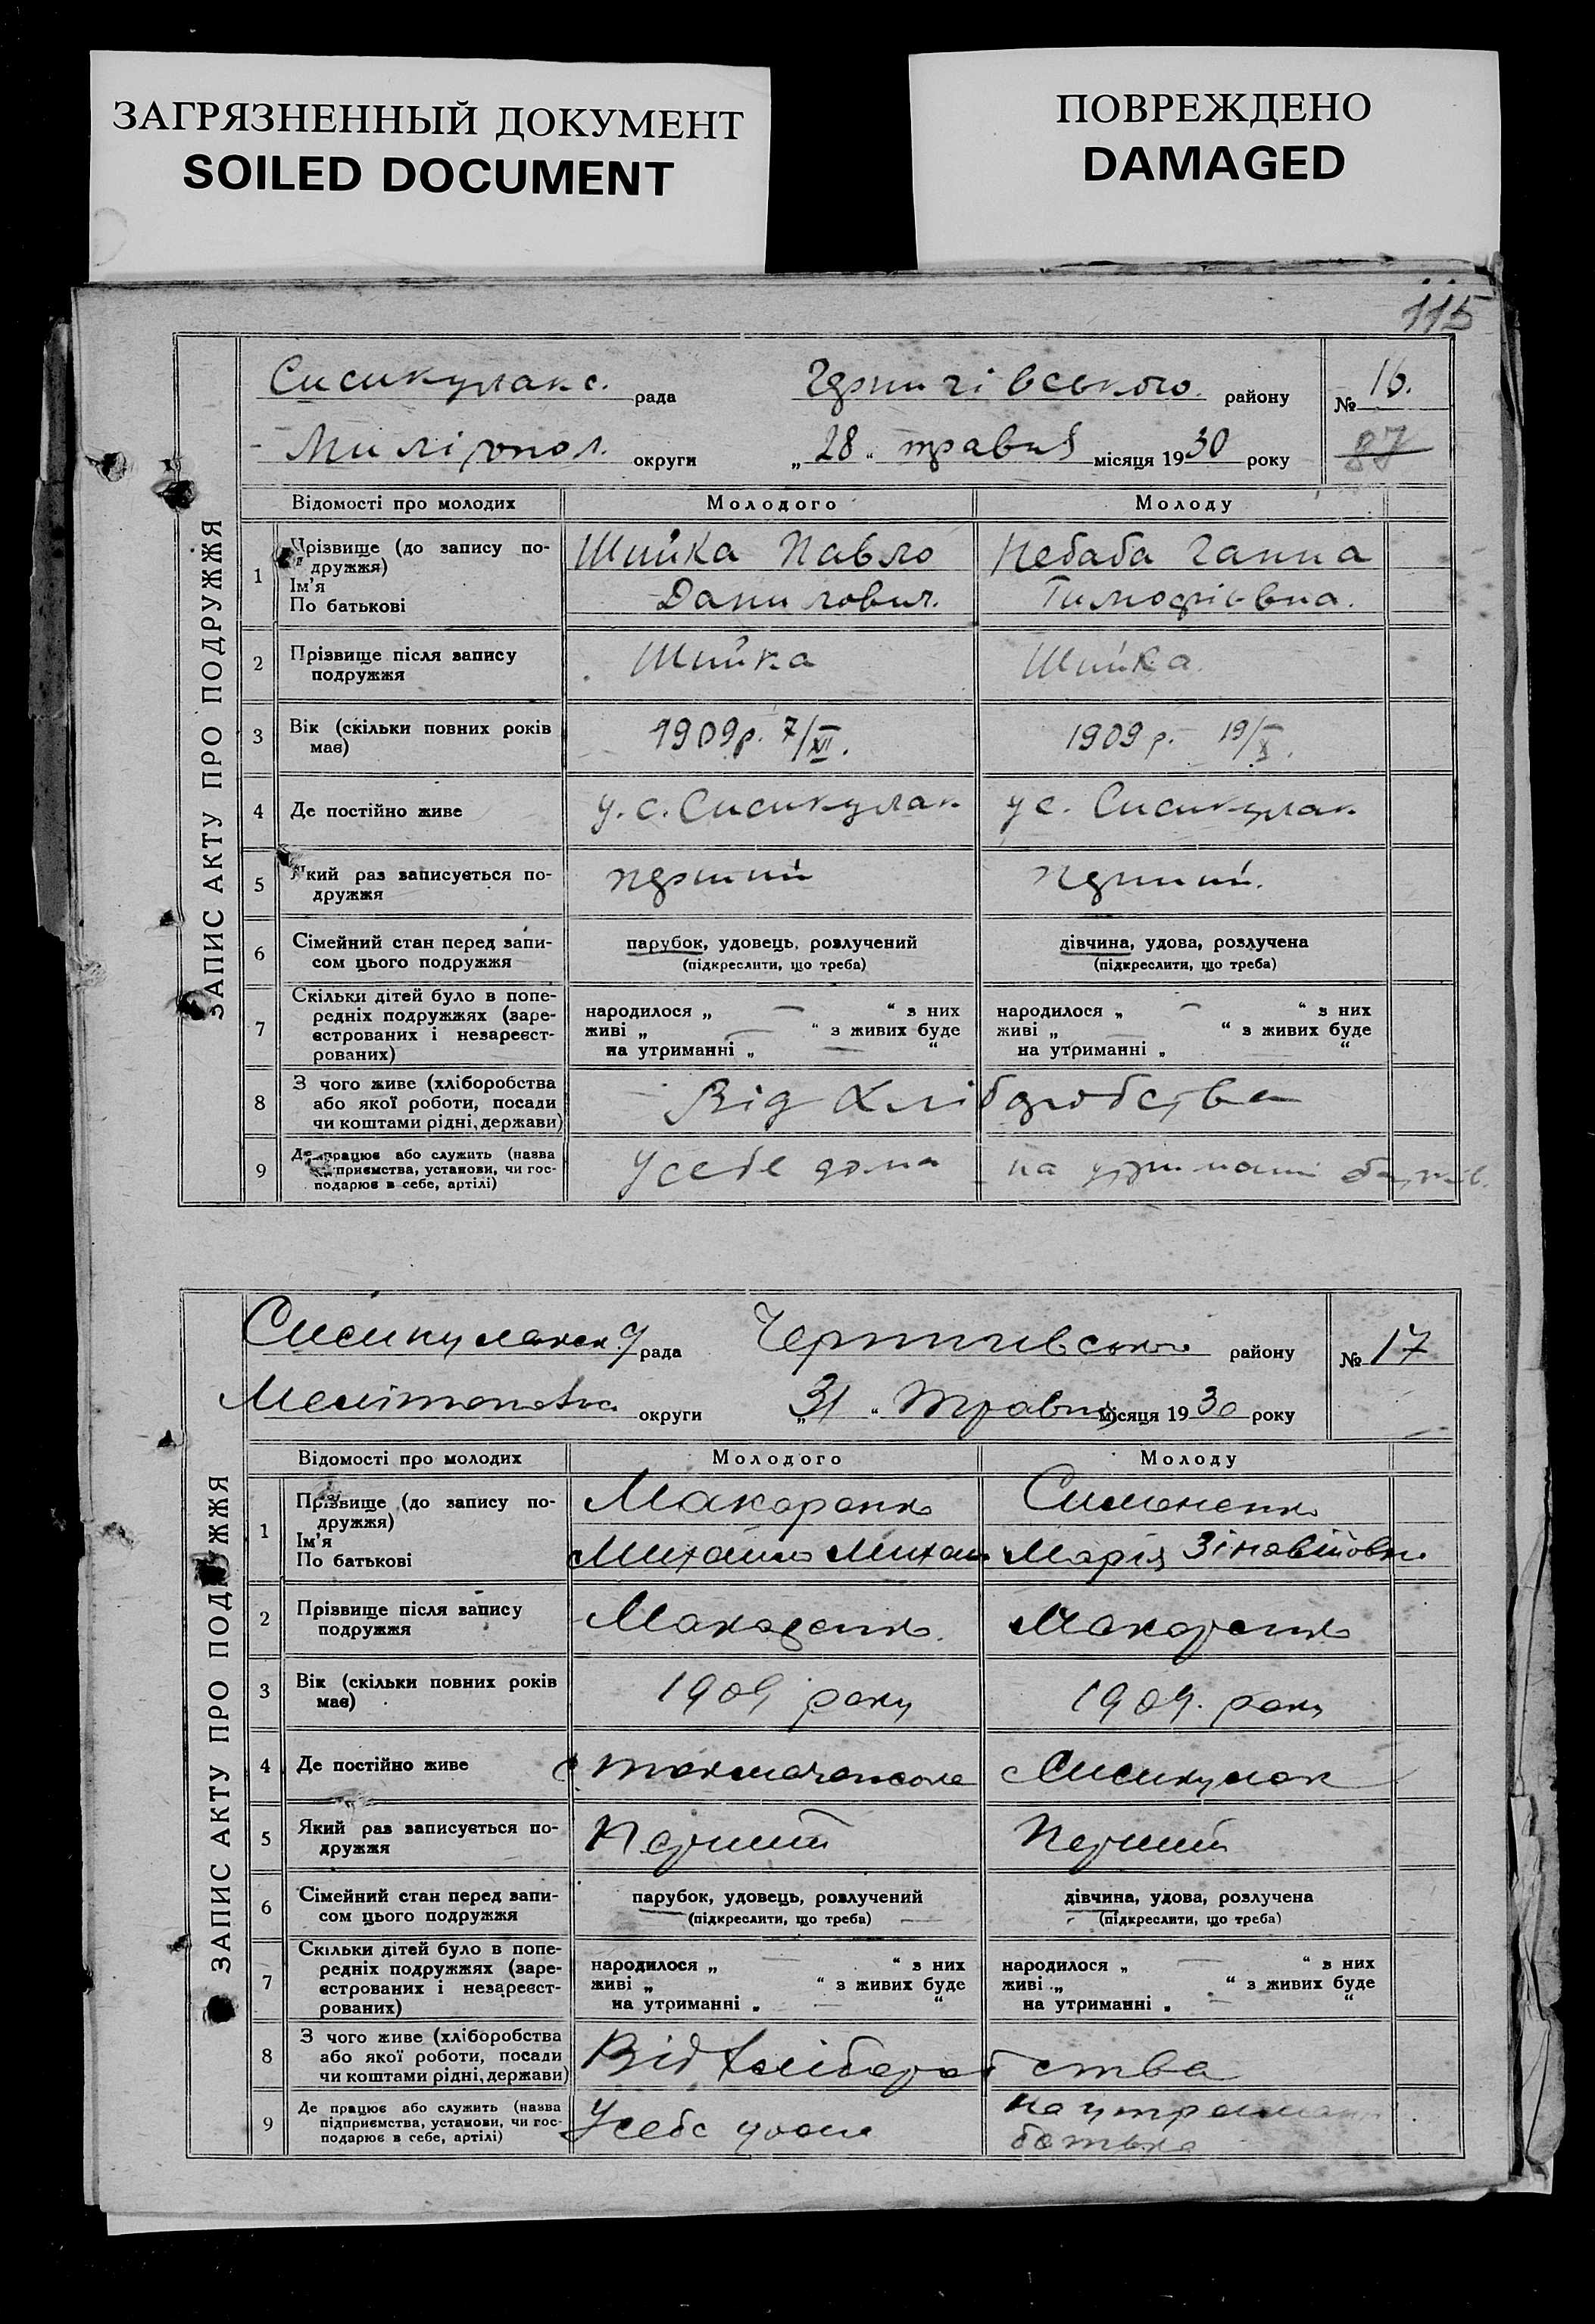 ЗАГРЯЗНЕННЫЙ ДОКУМЕНТ
SOILED DOCUMENT
ПОВРЕЖДЕНО
DAMAGED
115
ЗАПИС АКТУ ПРО ПОДРУЖЖЯ
Сисикулакс. рада району № 16.
округи „28“ травня місяця 1930 року 87
Відомості про молодих Молодого Молоду
1 Прізвище (до запису по- Шийка Павло Небаба Ганна
дружжя)
Ім'я Данилович. Тимофіївна.
По батькові
2 Прізвище після запису Шийка Шийка.
подружжя
3 Вік (скільки повних років 1909р. 7/XI. 1909 р. 19/X.
має)
4 Де постійно живе у. с. Сисикулак у с. Сисикулак
5 Який раз записується по- перший перший.
дружжя
6 Сімейний стан перед запи- парубок, удовець, розлучений дівчина, удова, розлучена
сом цього подружжя (підкреслити, що треба) (підкреслити, що треба)
7 Скільки дітей було в попе-
редніх подружжях (заре- народилося „ — “ з них народилося „ — “ з них
єстрованих і незареєст- живі „ — “ з живих буде живі „ “ з живих буде
рованих) на утриманні „ — “ на утриманні „ “
8 З чого живе (хліборобства Від хліборобства
або якої роботи, посади
чи коштами рідні, держави)
9 Де працює або служить (назва У себе дома на утриманні батьків.
підприємства, установи, чи гос-
подарює в себе, артілі)
ЗАПИС АКТУ ПРО ПОДРУЖЖЯ
рада району № 17
округи „31“ Травня місяця 1930 року
Відомості про молодих Молодого Молоду
1 Прізвище (до запису по- Макаренко Симоненко
дружжя)
Ім'я Михайло Михай Марія Зіновіївна
По батькові
2 Прізвище після запису Макаренко. Макаренко
подружжя
3 Вік (скільки повних років 1909 року 1909. року
має)
4 Де постійно живе Сисикулак
5 Який раз записується по- Перший Перший
дружжя
6 Сімейний стан перед запи- парубок, удовець, розлучений дівчина, удова, розлучена
сом цього подружжя (підкреслити, що треба) — (підкреслити, що треба)
7 Скільки дітей було в попе-
редніх подружжях (заре- народилося „ — “ з них народилося „ — “ з них
єстрованих і незареєст- живі „ “ з живих буде живі „ “ з живих буде
рованих) на утриманні „ — “ на утриманні „ — “
8 З чого живе (хліборобства Від хліборобства
або якої роботи, посади
чи коштами рідні, держави)
9 Де працює або служить (назва У себе дома На утриманні
підприємства, установи, чи гос- батька
подарює в себе, артілі)